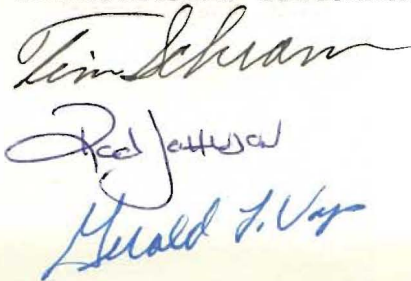 Tim Schram
Rod Johnson
Gerald L. Vap